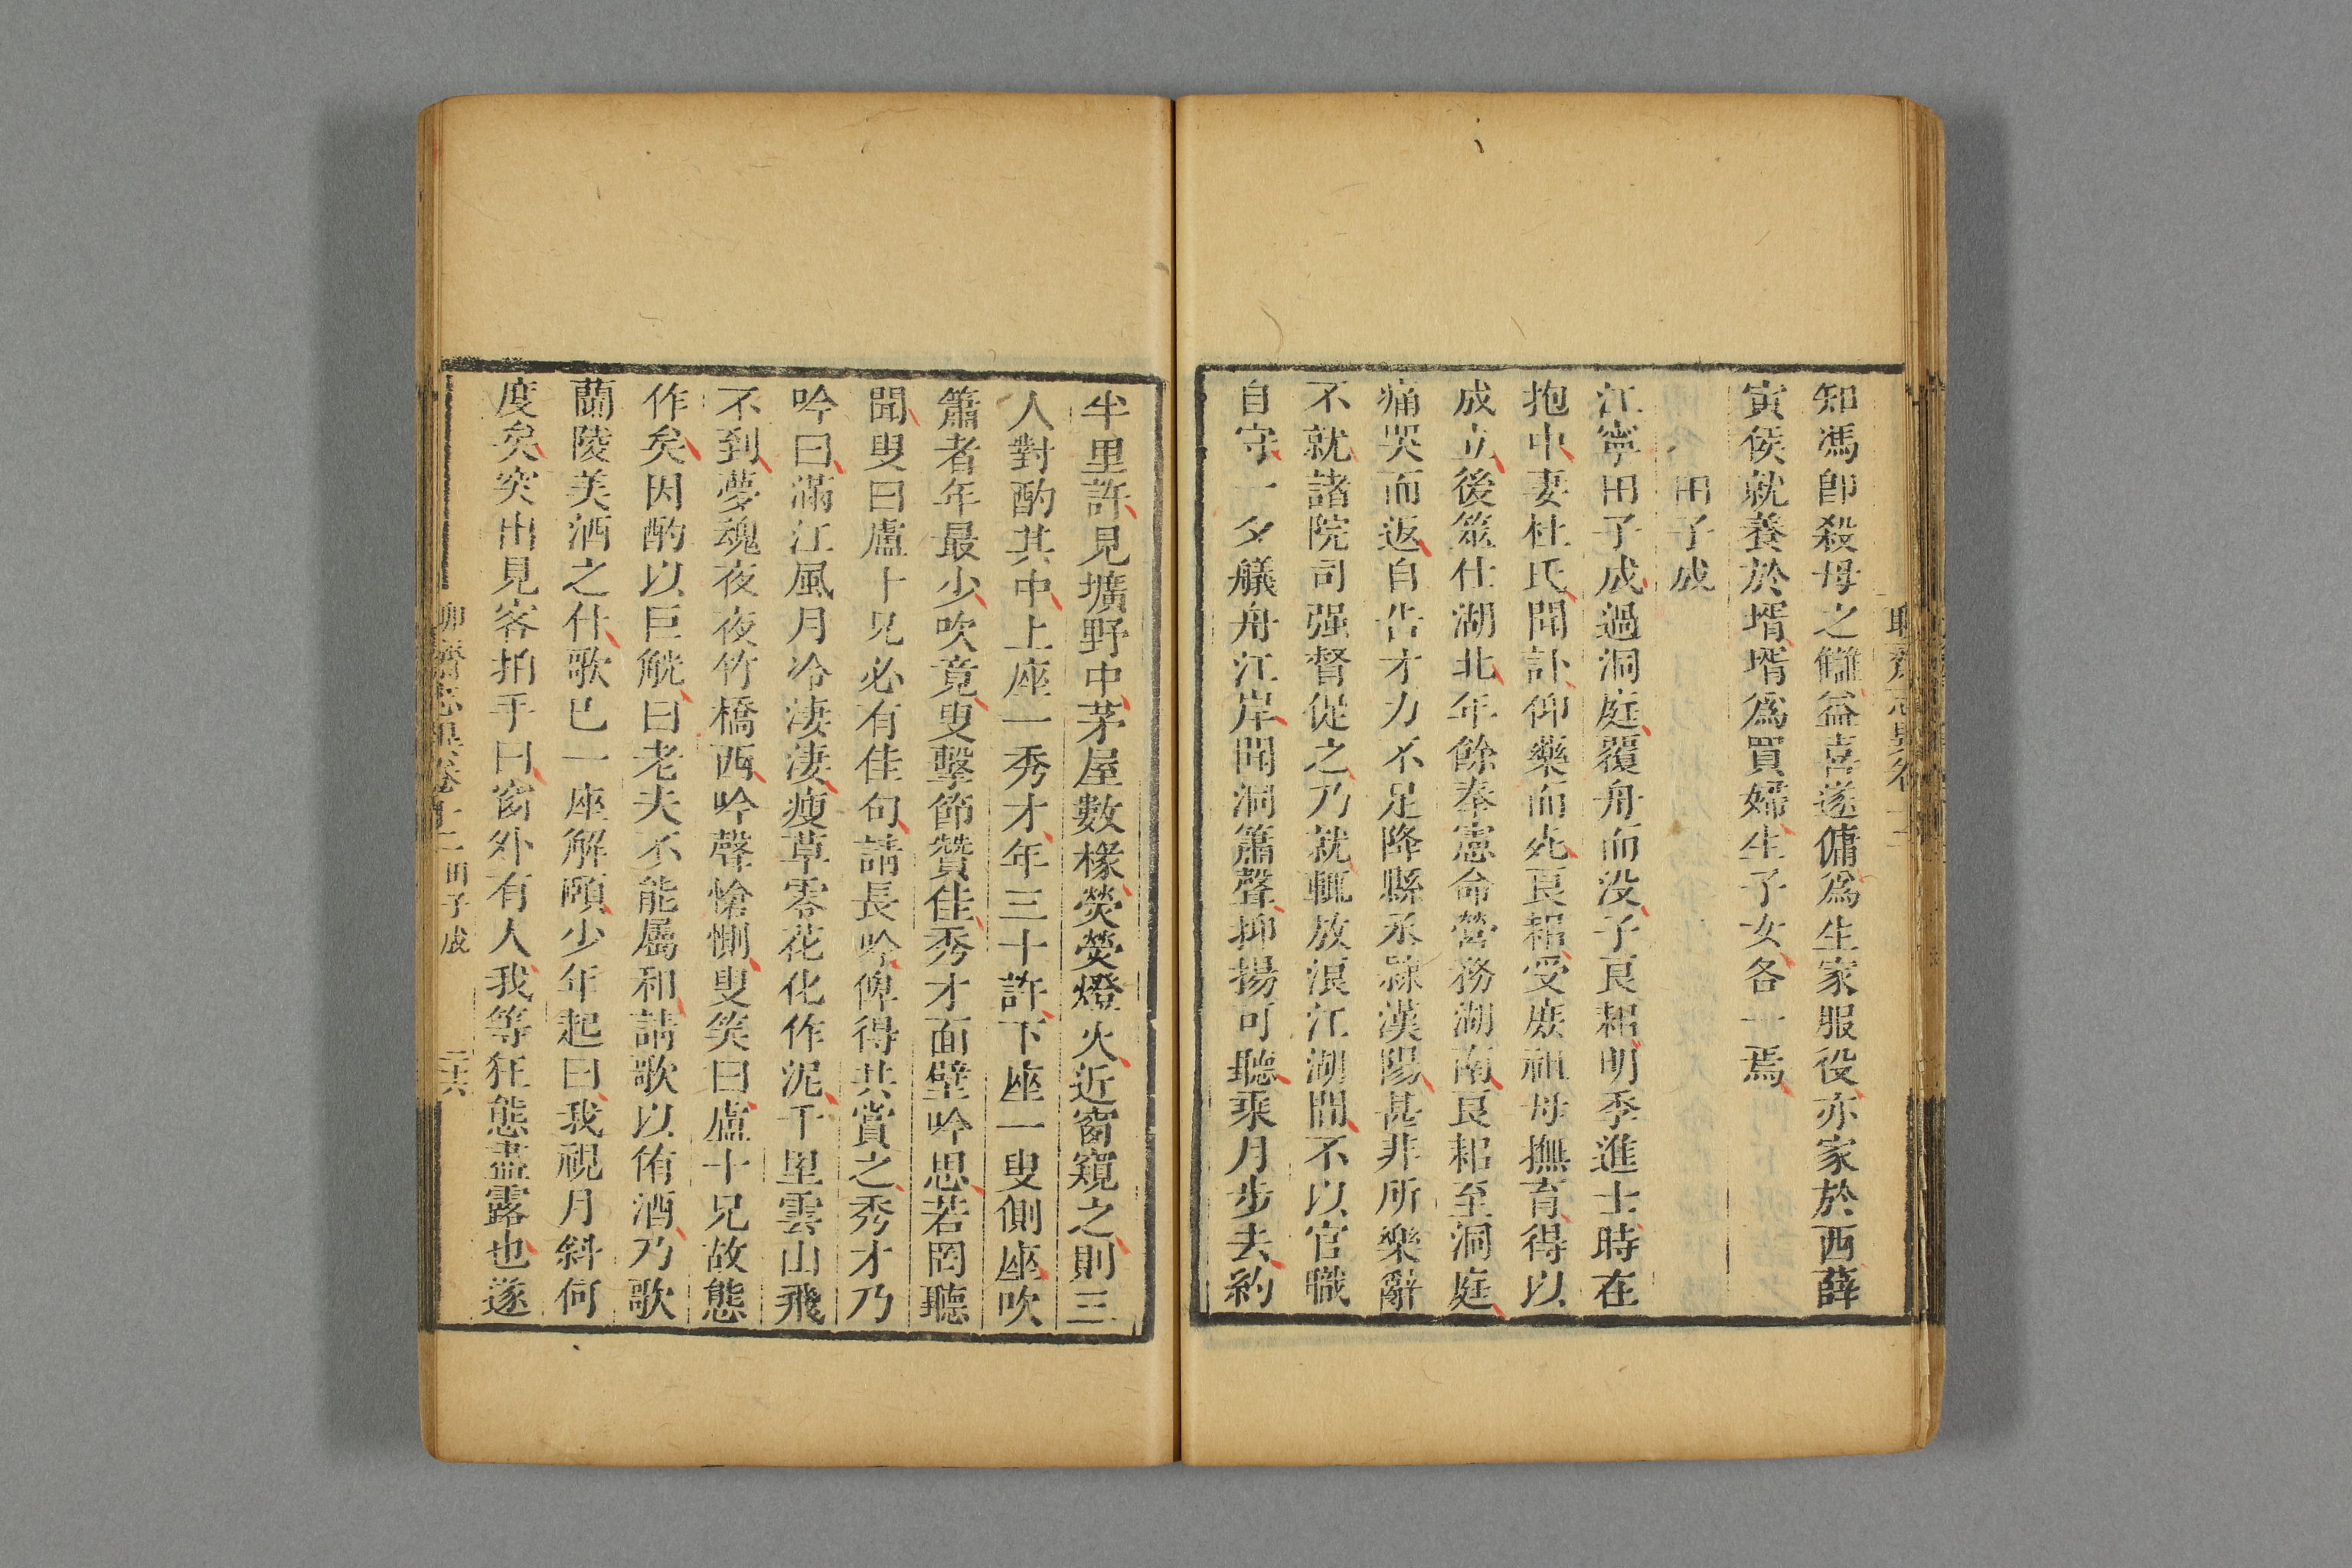 知馮卽殺母之讎益喜遂傭爲生家服役亦家於西薛
寅侯就養於壻壻爲買婦生子女各一焉
田子成
江寧田子成過洞庭覆舟而没子良耜明季進士時在
抱中妻杜氏聞訃仰藥而死良耜受庶祖母撫育得以
成立後筮仕湖北年餘奉憲命營務湖南良耜至洞庭
痛哭而返自告才力不足降縣丞隷漢陽甚非所樂辭
不就諸院司强督促之乃就輒放浪江湖間不以官職
自守一夕艤舟江岸聞洞簫聲抑揚可聽乘月步去約
半里許見壙野中茅屋數椽熒熒燈火近窗窺之則三
人對酌其中上座一秀才年三十許下座一叟側座吹
簫者年最少吹竟叟擊節贊佳秀才面壁吟思若罔聽
聞叟曰盧十兄必有佳句請長吟俾得共賞之秀才乃
吟曰滿江風月冷淒淒瘦草零花化作泥千里雲山飛
不到夢魂夜夜竹橋西吟聲愴惻叟笑曰盧十兄故態
作矣因酌以巨觥曰老夫不能屬和請歌以侑酒乃歌
蘭陵美酒之什歌已一座解頤少年起曰我視月斜何
度矣突出見客拍手曰窗外有人我等狂態盡露也遂
聊齋志異卷十二 田子成 三六